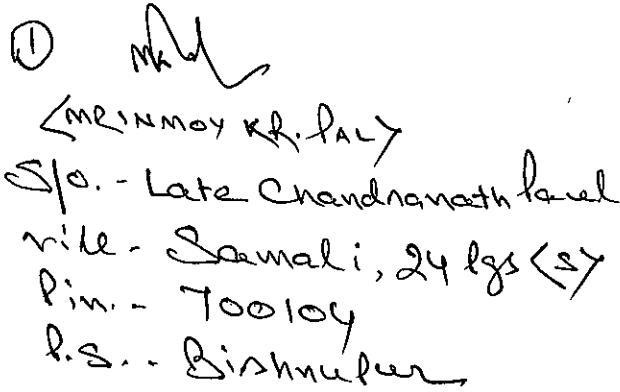 ①
<MRINMOY KR. PAL>
S/o. - Late Chandranath Paul
vill - Samali, 24 Pgs <S>
Pin. - 700104
P.S. - Bishnupur